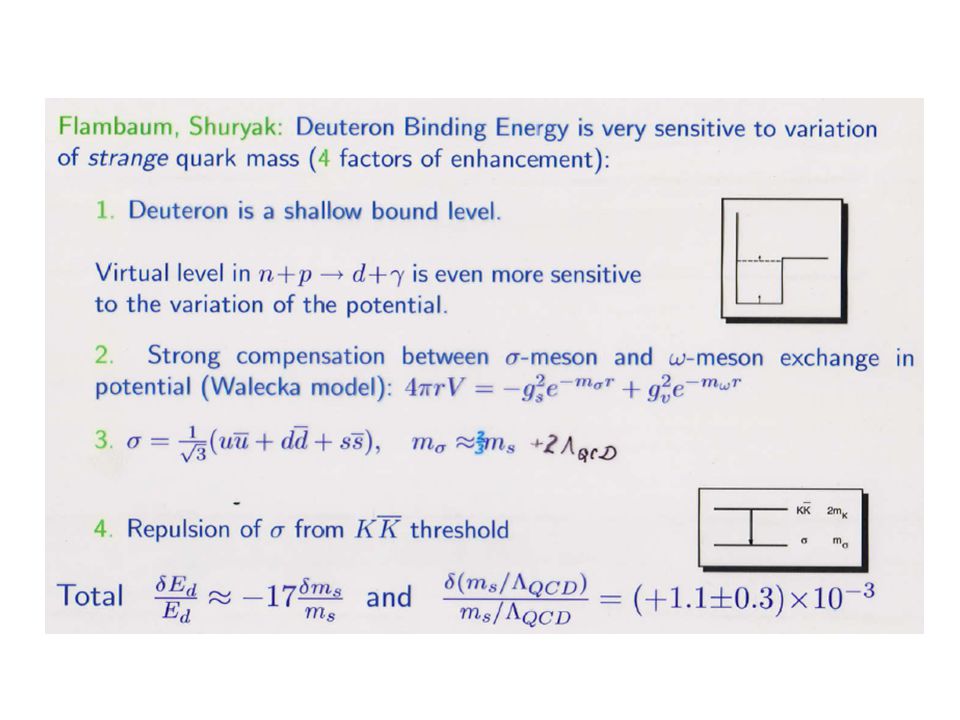 Flambaum, Shuryak: Deuteron Binding Energy is very sensitive to variation
of strange quark mass (4 factors of enhancement):
1. Deuteron is a shallow bound level.
Virtual level in n+p → d+γ is even more sensitive
to the variation of the potential.
2. Strong compensation between σ-meson and ω-meson exchange in
potential (Walecka model): 4πrV = −g_s^2 e^{−m_σ r} + g_v^2 e^{−m_ω r}
3. σ = \frac{1}{\sqrt{3}}(u\overline{u} + d\overline{d} + s\overline{s}), m_σ ≈ \frac{2}{3}m_s +2Λ_{QCD}
4. Repulsion of σ from K\overline{K} threshold
K\overline{K} 2m_K
σ m_σ
Total \frac{δE_d}{E_d} ≈ −17\frac{δm_s}{m_s} and \frac{δ(m_s/Λ_{QCD})}{m_s/Λ_{QCD}} = (+1.1±0.3)×10^{−3}